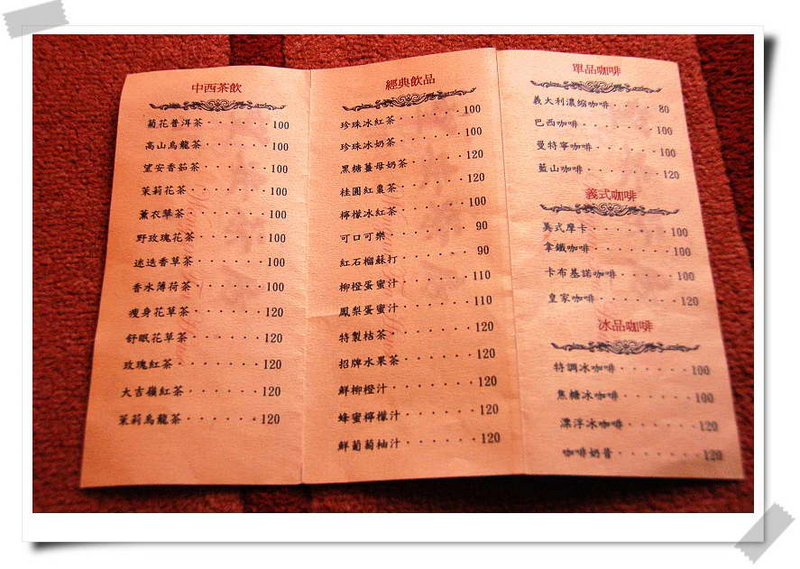 中西茶飲
菊花普洱茶······100
高山烏龍茶······100
望安香茹茶······100
茉莉花茶········100
薰衣草茶········100
野玫瑰花茶······100
迷迭香草茶······100
香水薄荷茶······100
瘦身花草茶······120
舒眠花草茶······120
玫瑰紅茶········120
大吉嶺紅茶······120
茉莉烏龍茶······120
經典飲品
珍珠冰紅茶······100
珍珠冰奶茶······100
黑糖薑母奶茶····120
桂圓紅棗茶······120
檸檬冰紅茶······100
可口可樂········90
紅石榴蘇打······90
柳橙蛋蜜汁······110
鳳梨蛋蜜汁······110
特製桔茶········120
招牌水果茶······120
鮮柳橙汁········120
蜂蜜檸檬汁······120
鮮葡萄柚汁······120
單品咖啡
義大利濃縮咖啡····80
巴西咖啡········100
曼特寧咖啡······100
藍山咖啡········120
義式咖啡
美式摩卡········100
拿鐵咖啡········100
卡布基諾咖啡····100
皇家咖啡········120
冰品咖啡
特調冰咖啡······100
焦糖冰咖啡······100
漂浮冰咖啡······120
咖啡奶昔········120